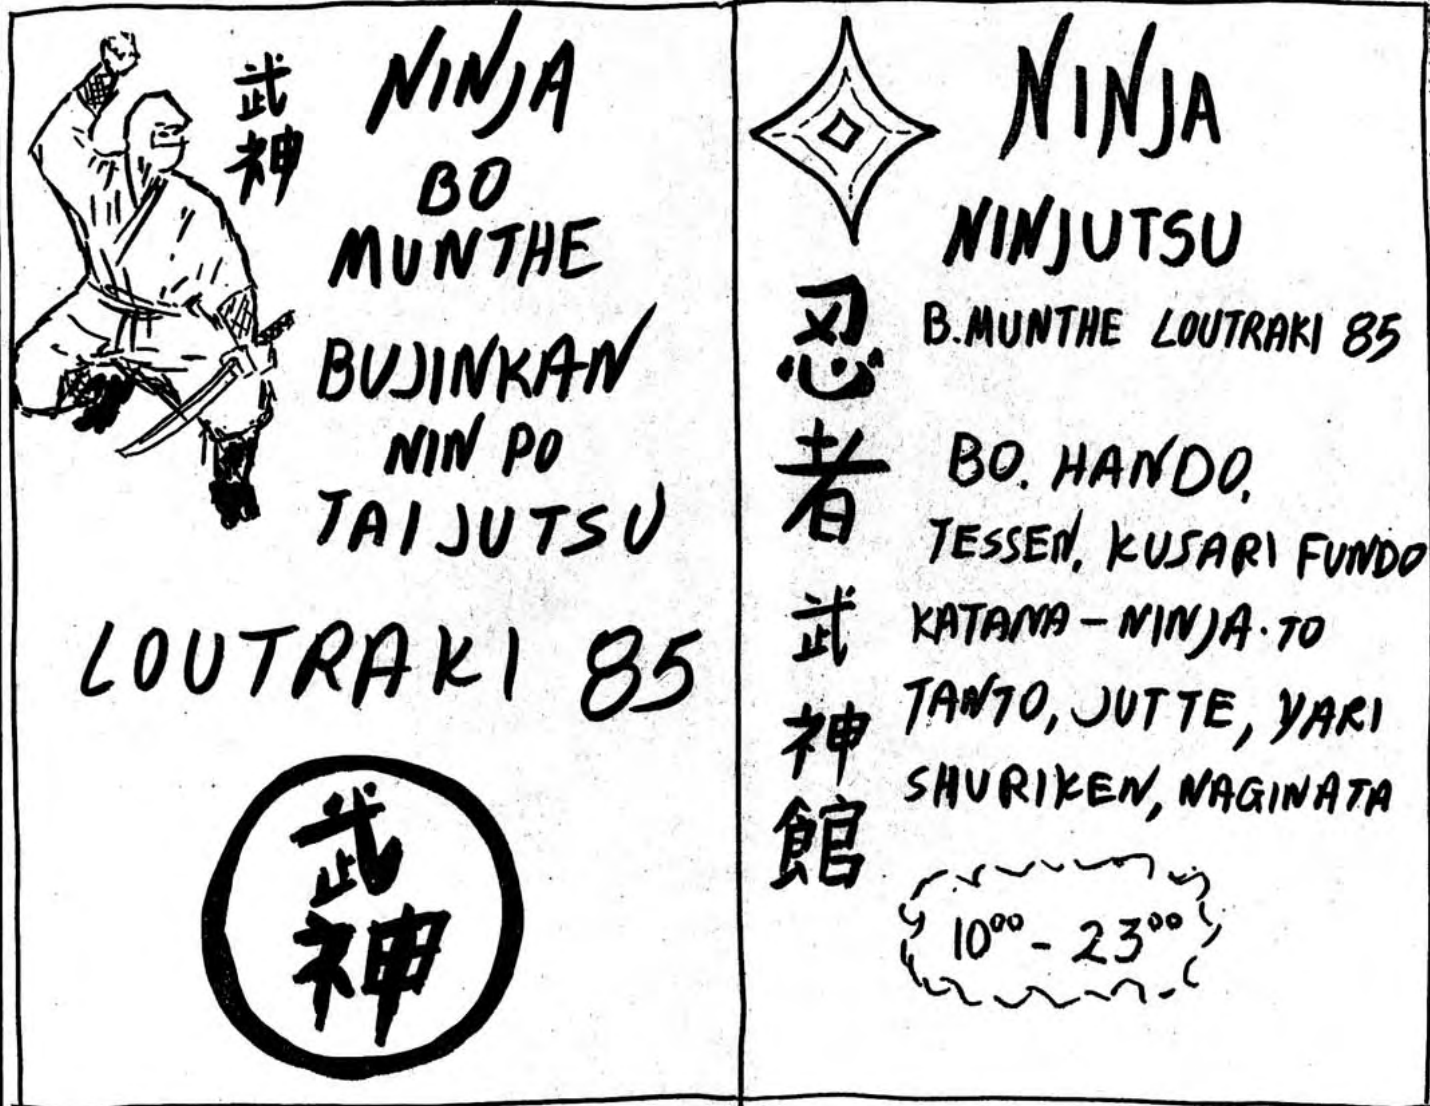 武神
NINJA
BO
MUNTHE
BUJINKAN
NIN PO
TAIJUTSU
LOUTRAKI 85
武神
NINJA
NINJUTSU
B. MUNTHE LOUTRAKI 85
忍者
武神館
BO. HANDO,
TESSEN, KUSARI FUNDO
KATANA - NINJA·TO
TANTO, JUTTE, YARI
SHURIKEN, NAGINATA
10⁰⁰ - 23⁰⁰